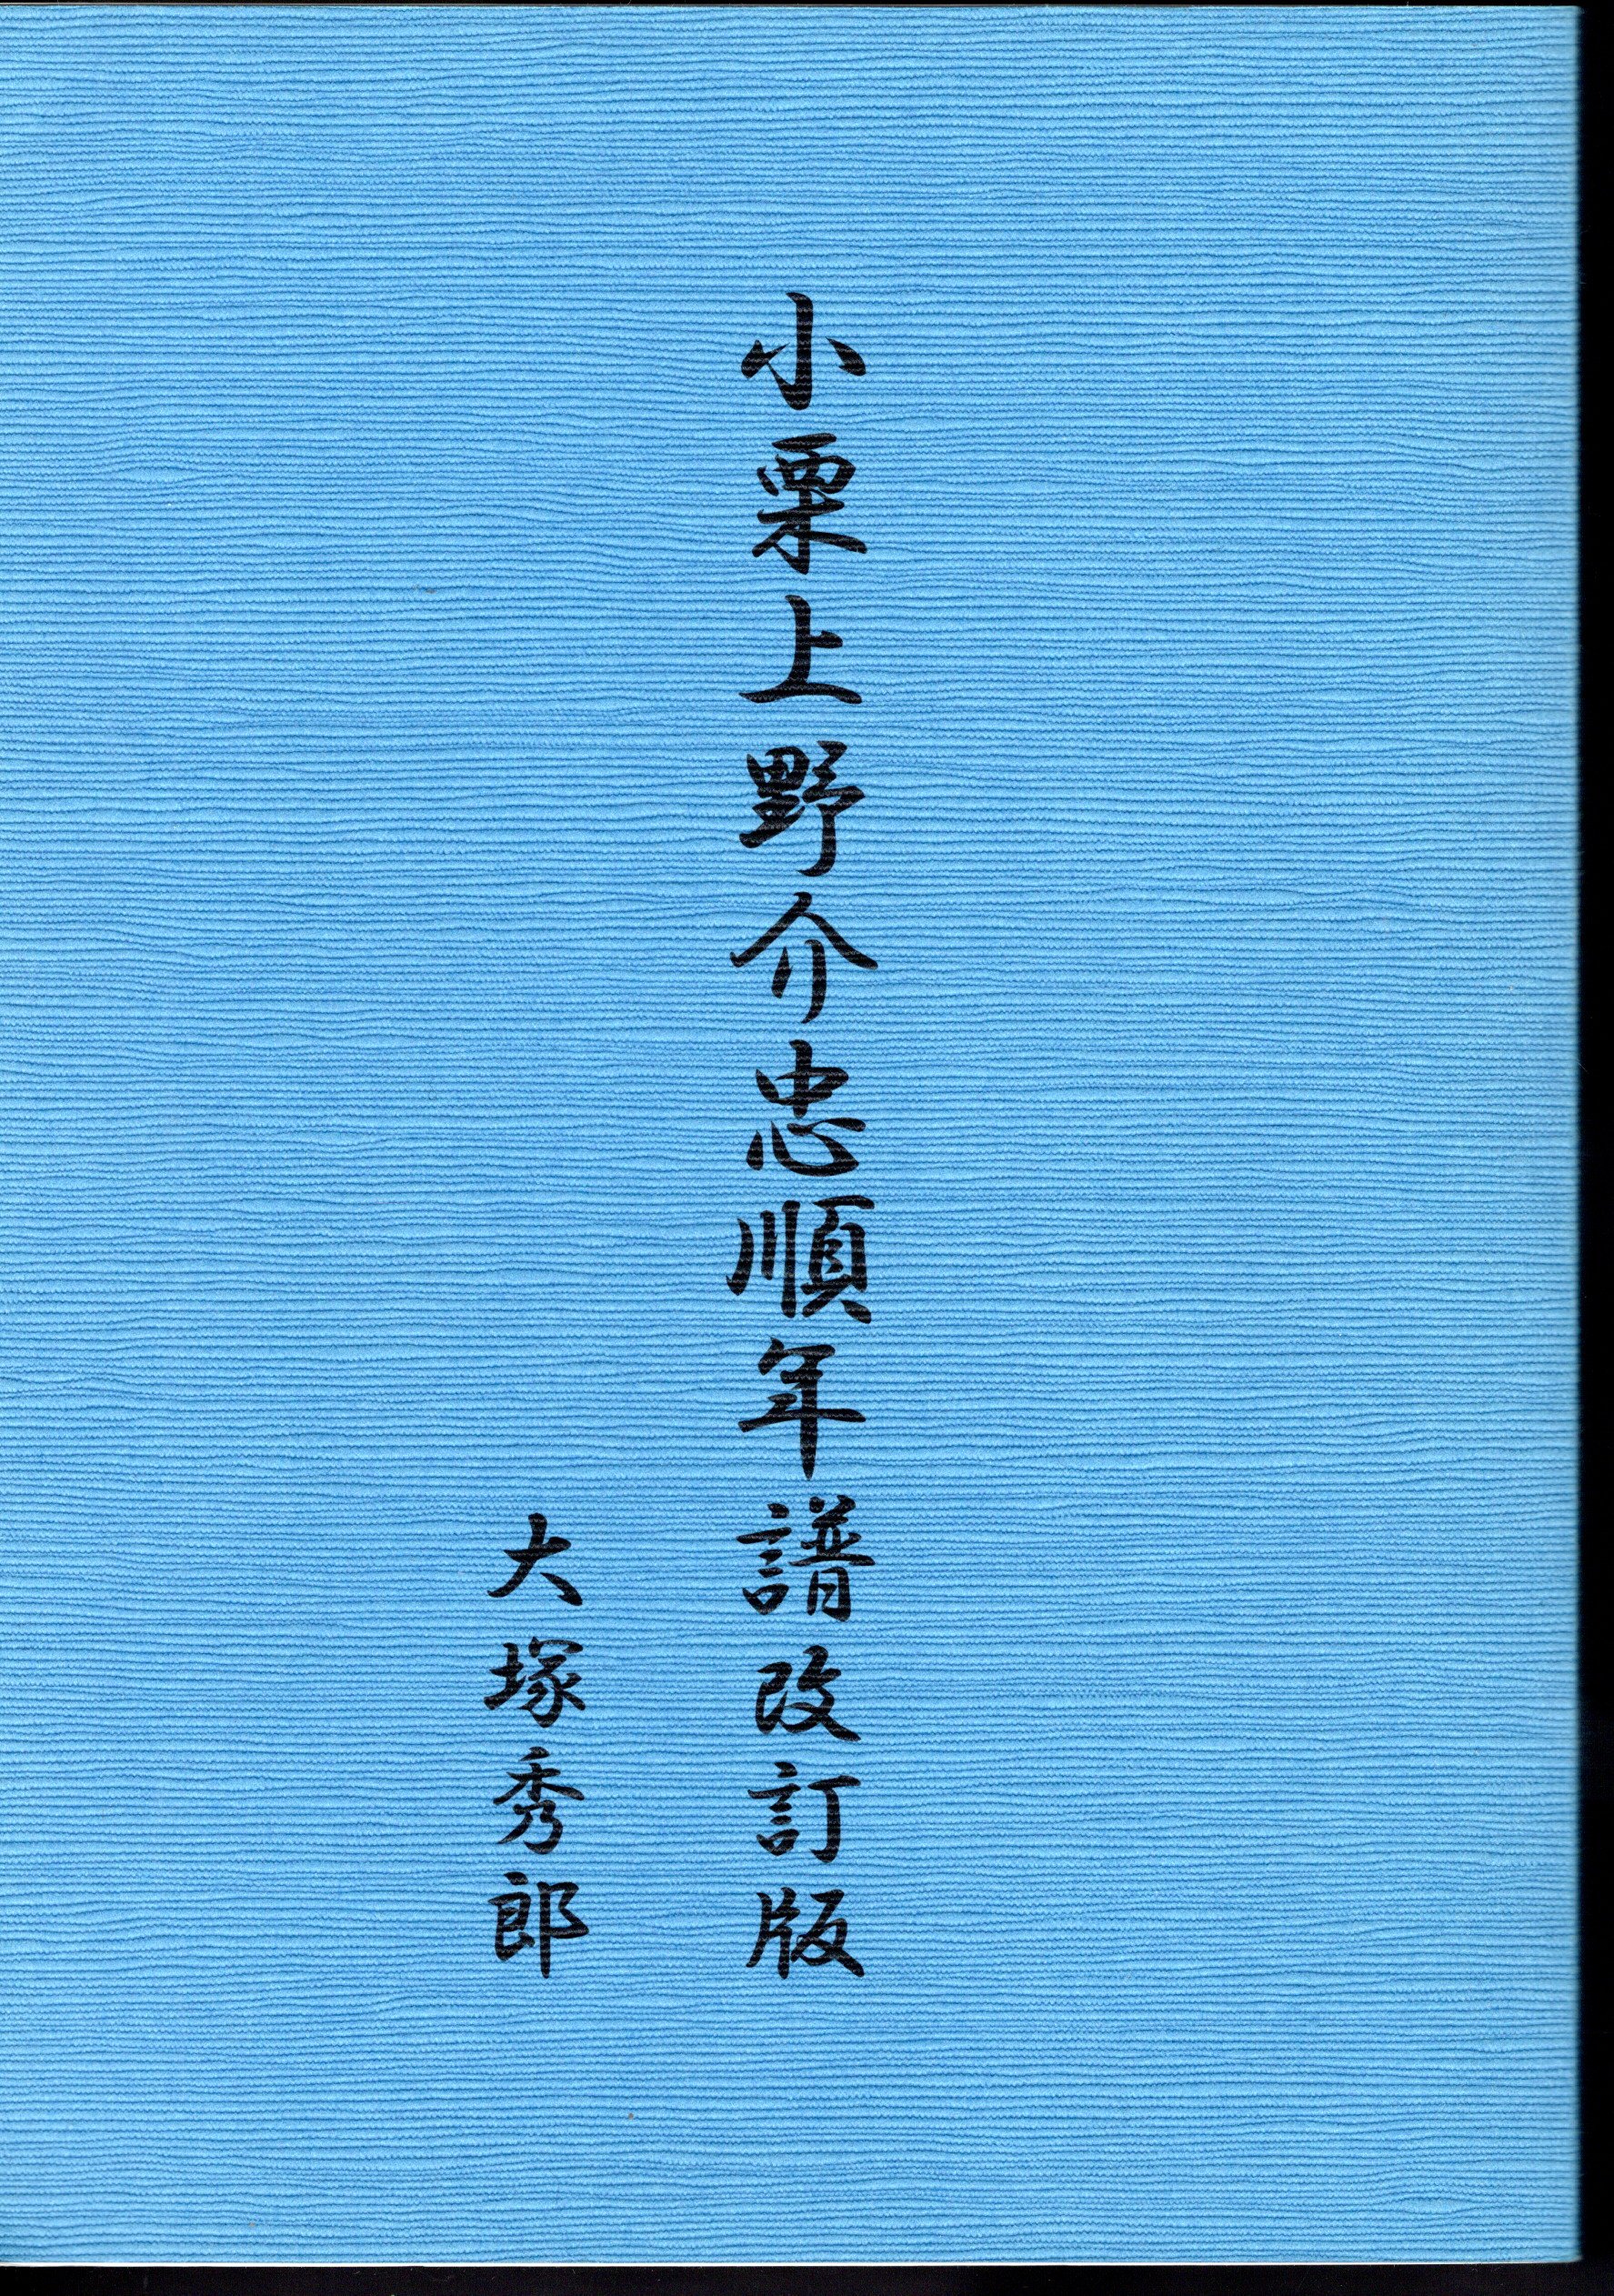 小栗上野介忠順年譜改訂版
大塚秀郎